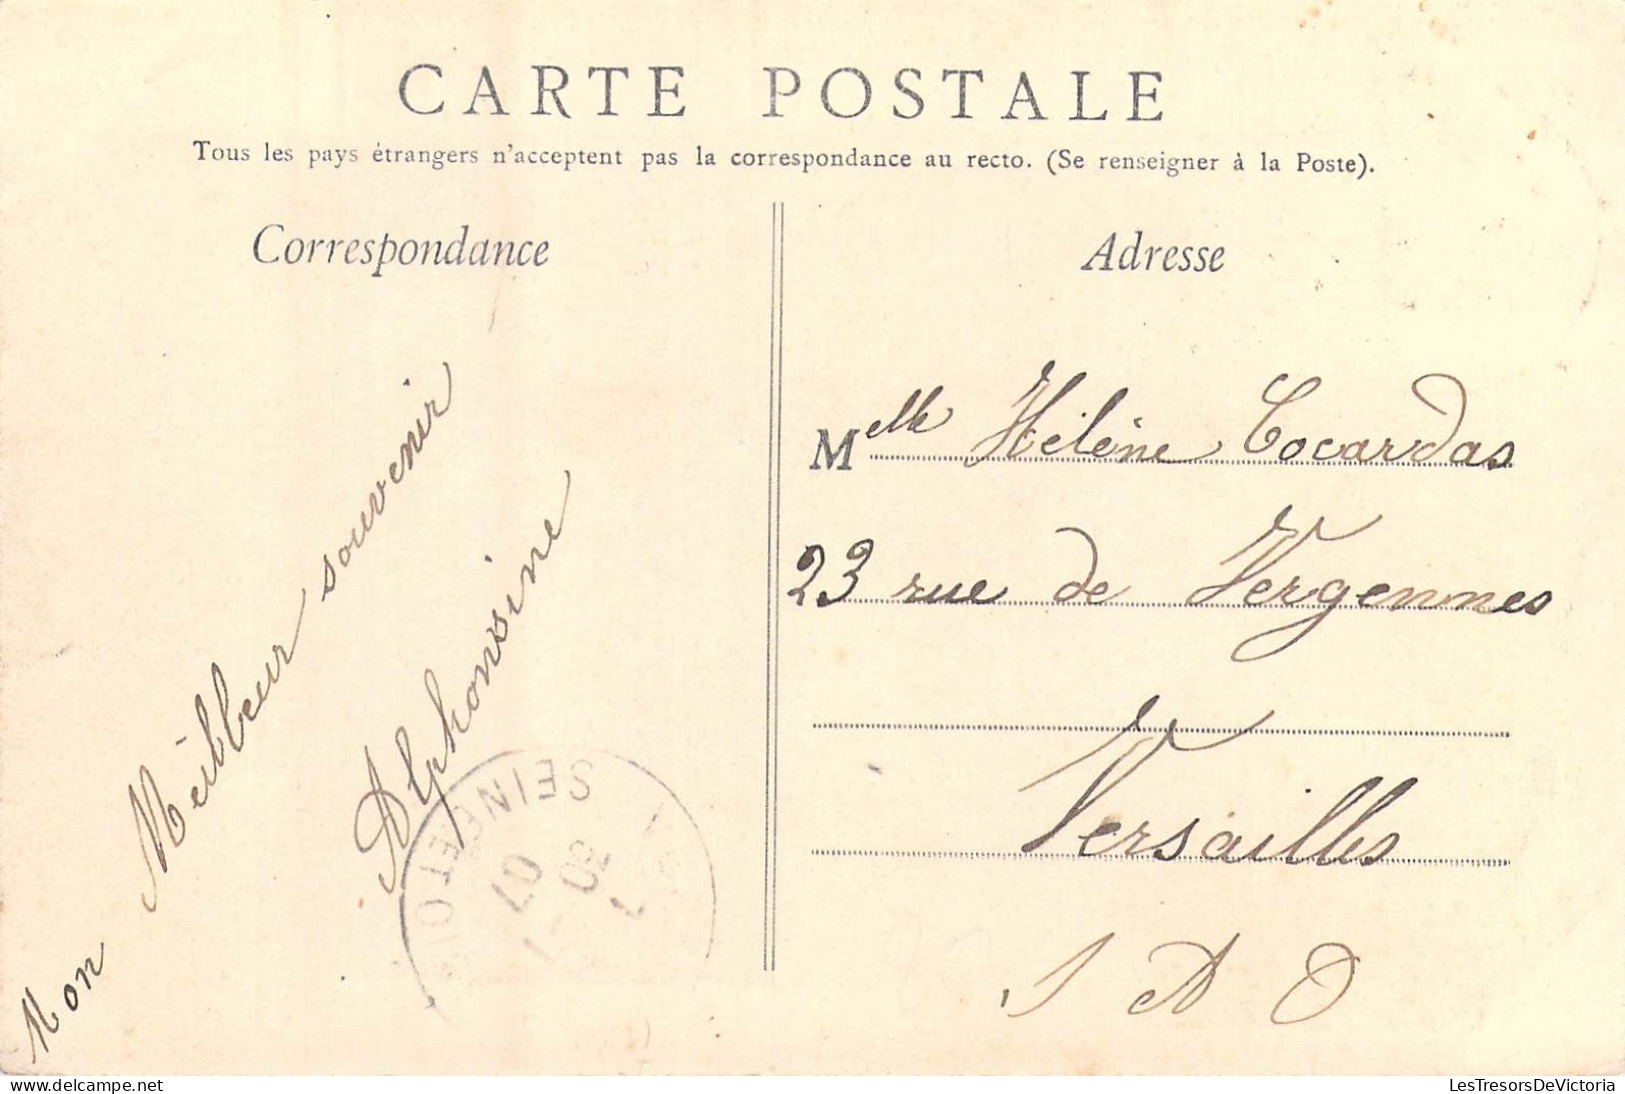 CARTE POSTALE
Tous les pays étrangers n'acceptent pas la correspondance au recto. (Se renseigner à la Poste).
Correspondance
Mon Meilleur souvenir
Alphonsine
SEINE ET OISE
07
Adresse
Melle Hélène Cocardas
23 rue de Vergennes
Versailles
S A O
LesTresorsDeVictoria